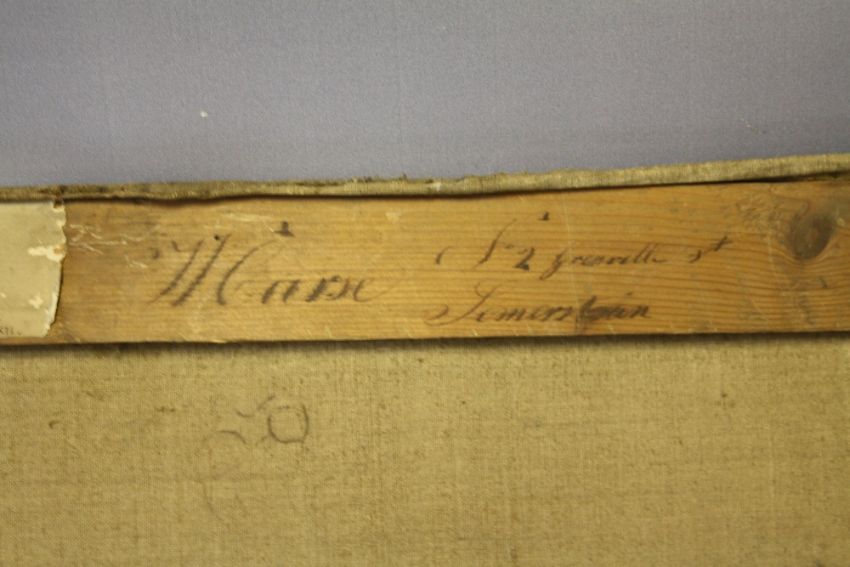 W Carse No 2 Grenville st
Somerstown